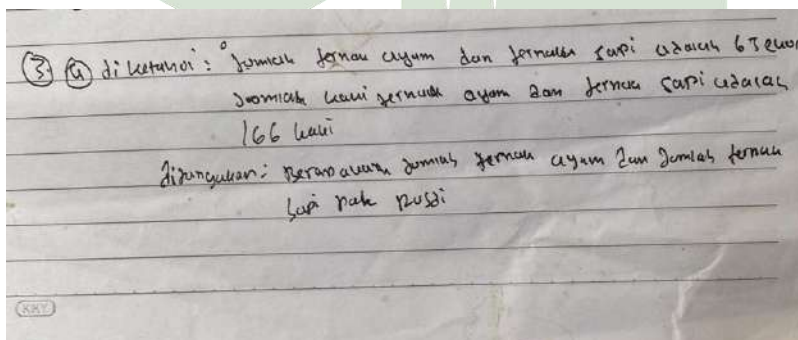 ③ ⓐ diketahui : Jumlah ternak ayam dan ternak sapi adalah 65 ekor
Jumlah kaki ternak ayam dan ternak sapi adalah
166 kaki
ditanyakan : Berapakah Jumlah ternak ayam dan Jumlah ternak
sapi pak Rusdi
KKY